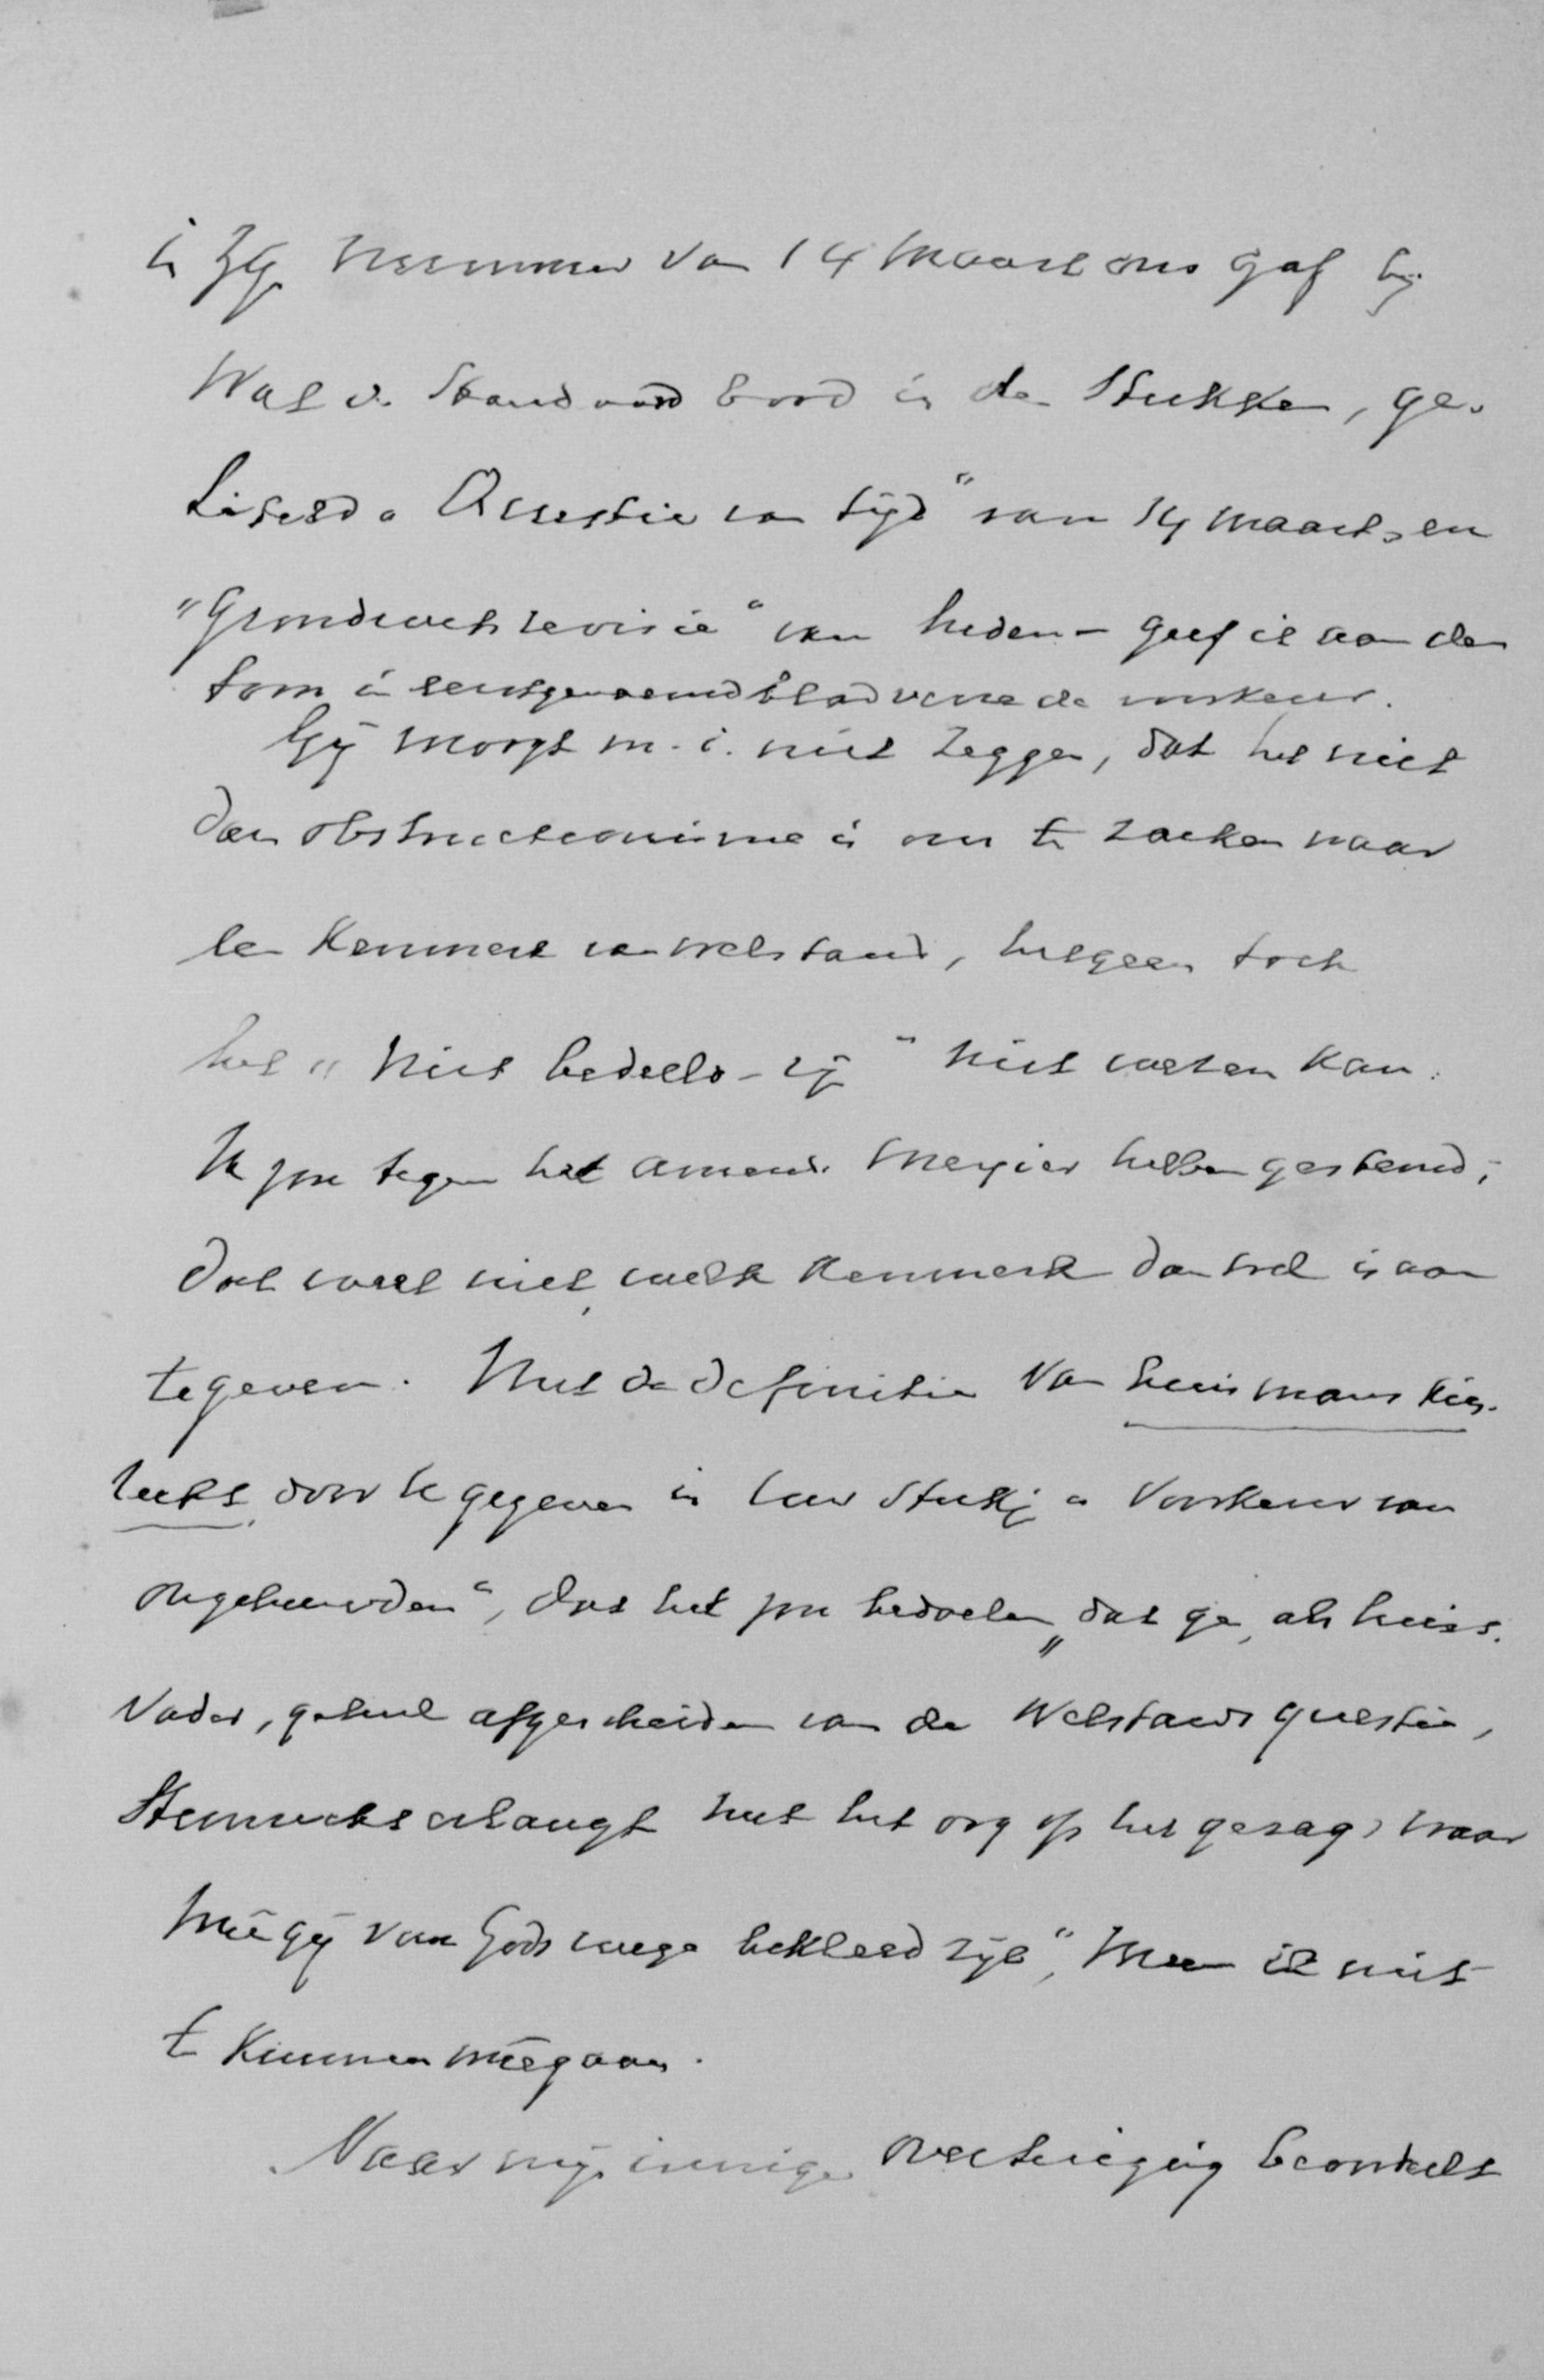 in zijn nummer van 14 Maart ons gaf bij
Wat de Standaard bood in de Stukken, ge-
titeld „Quaestie van tijd" van 14 Maart, en
„Grondwetsrevisie" van heden - geef ik aan den
toon in eerstgenoemd blad verre de voorkeur.
Gij moogt m. i. niet zeggen, dat het niet
dan obstructionisme is om te zoeken naar
een Kenmerk van welstand, hetgeen toch
het „Niet bedeeld-zijn" niet wezen kan.
Ik zou tegen het amend. Meyier hebben gestemd;
doch weet niet, welk Kenmerk dan wel is aan
te geven. Met de definitie Van huismanskies-
recht, door U gegeven in Uw Stukje „Voorkeur van
ongehuwden", dat het zou bedoelen „dat ge, als huis-
Vader, geheel afgescheiden van de Welstands questie,
Stemrecht erlangt met het oog op het gezag, waar
meê gij van Gods wege bekleed zijt", Meen ik niet
te Kunnen meêgaan.
Naar mijn innige overtuiging beantwoordt